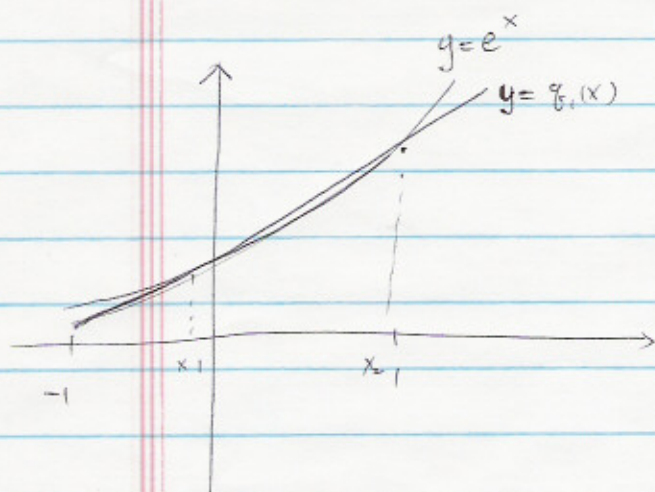 y=e^x
y= q₁(x)
x₁
x₂
1
-1